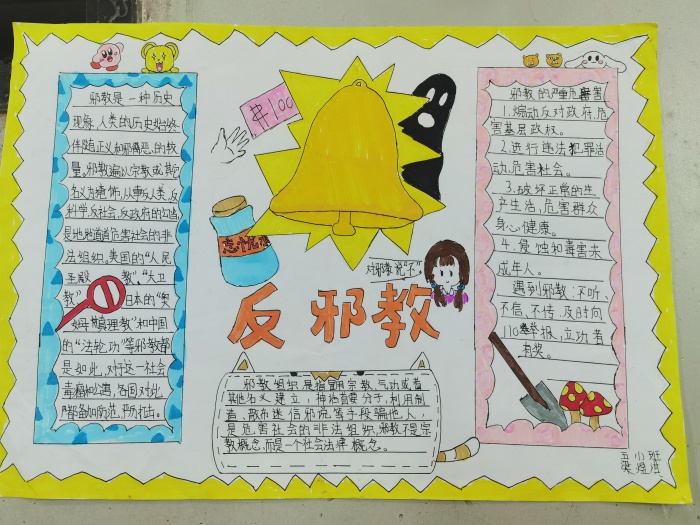 邪教是一种历史
现象,人类的历史始终
伴随正义和邪恶的较
量。邪教遍以宗教或其它
名义为掩饰,从事反人类、反
科学、反社会、反政府的勾当
是地地道道危害社会的非
法组织,美国的“人民
圣殿 教”、“大卫
教” 日本的“奥
姆真理教”和中国
的“法轮功”等邪教都
是如此,对于这一社会
毒瘤和公害,各国对此
都备加防范,严厉打击。
#100
忘忧水
对邪教说“不”
反邪教
邪教组织是指冒用宗教、气功或者
其他名义建立、神话首要分子,利用制
造、散布迷信邪说等手段骗他人,
是危害社会的非法组织,邪教不是宗
教概念,而是一个社会法律概念。
邪教的严重危害
1.煽动反对政府,危
害基层政权。
2.进行违法犯罪活
动,危害社会。
3.破坏正常的生
产生活,危害群众
身心健康。
4.侵蚀和毒害未
成年人。
遇到邪教:不听、
不信、不传、及时向
110举报,立功者
有奖。
五 小班
梁煜